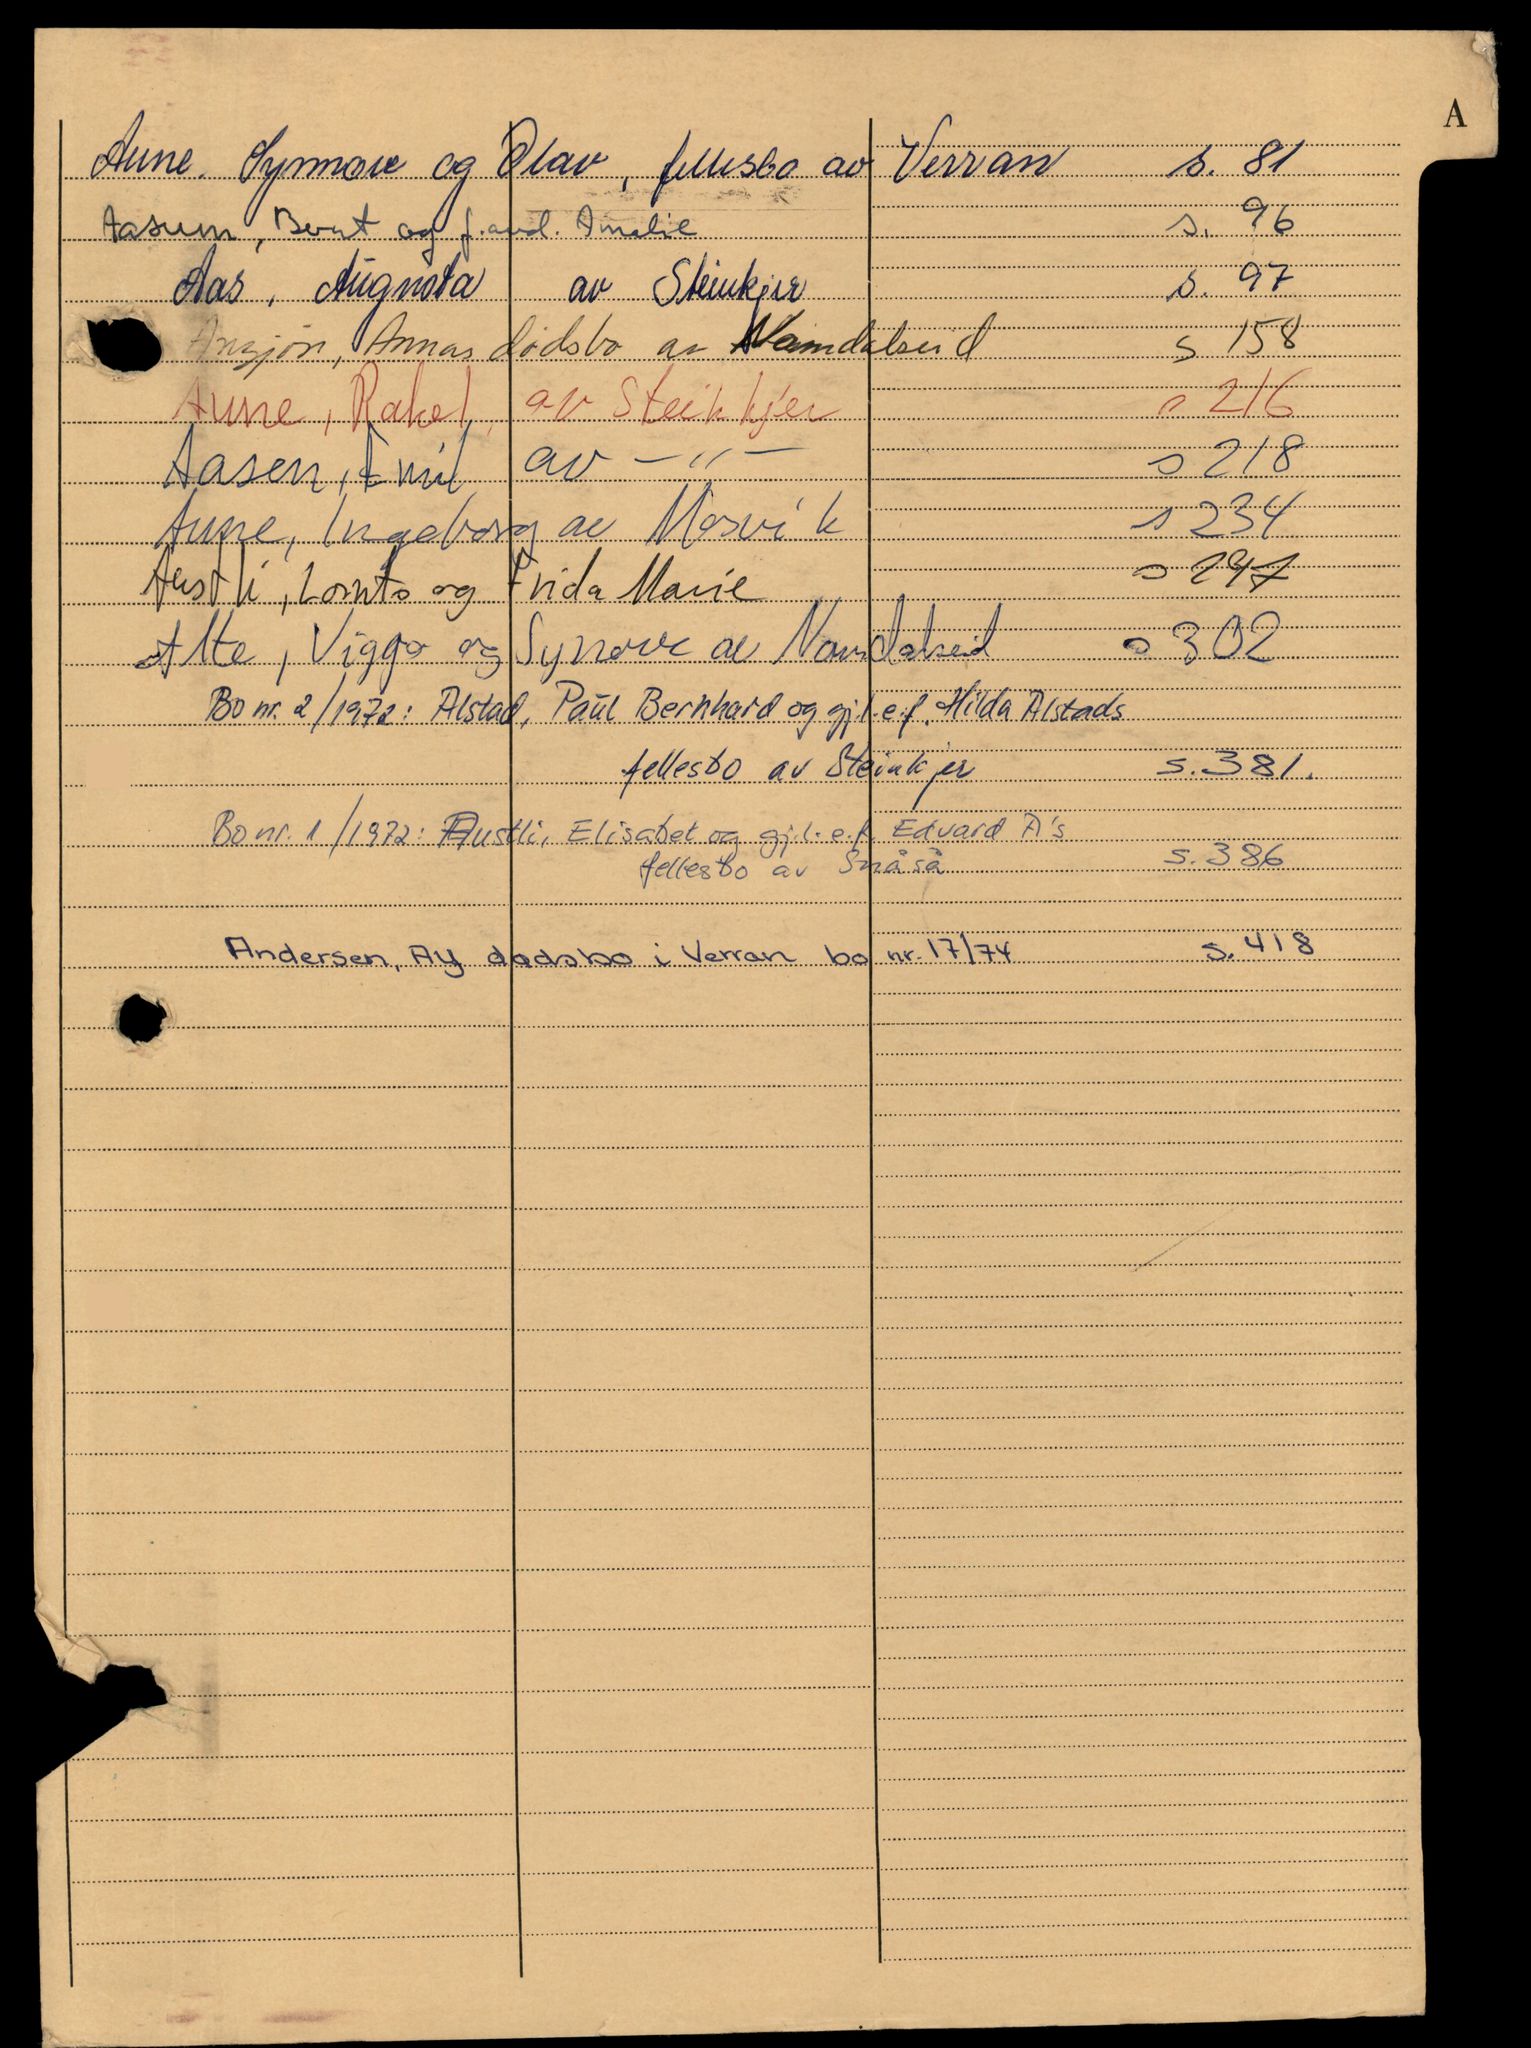 A
Aune. Synnøve og Olav, fellesbo av Verran s. 81
Aasum, Bernt og f.avd. Amalie s. 96
Aas, Augusta av Steinkjer s. 97
Ansjön, Annas dødsbo av Namdalseid s 158
Aune, Rakel, av Steinkjer s 216
Aasen, Emil av —"— s 218
Aune, Ingeborg av Mosvik s 234
Austli, Lornts og Frida Marie s 297
Alte, Viggo og Synøve av Namdalseid s 302
Bo nr. 2/1972: Alstad, Paul Bernhard og gj.l.e.f. Hilda Alstads
fellesbo av Steinkjer s. 381.
Bo nr. 1/1972: Austli, Elisabet og gj.l.e.f. Edvard A's
fellesbo av Snåsa s. 386
Andersen, Ay dødsbo i Verran bo nr. 17/74 s. 418